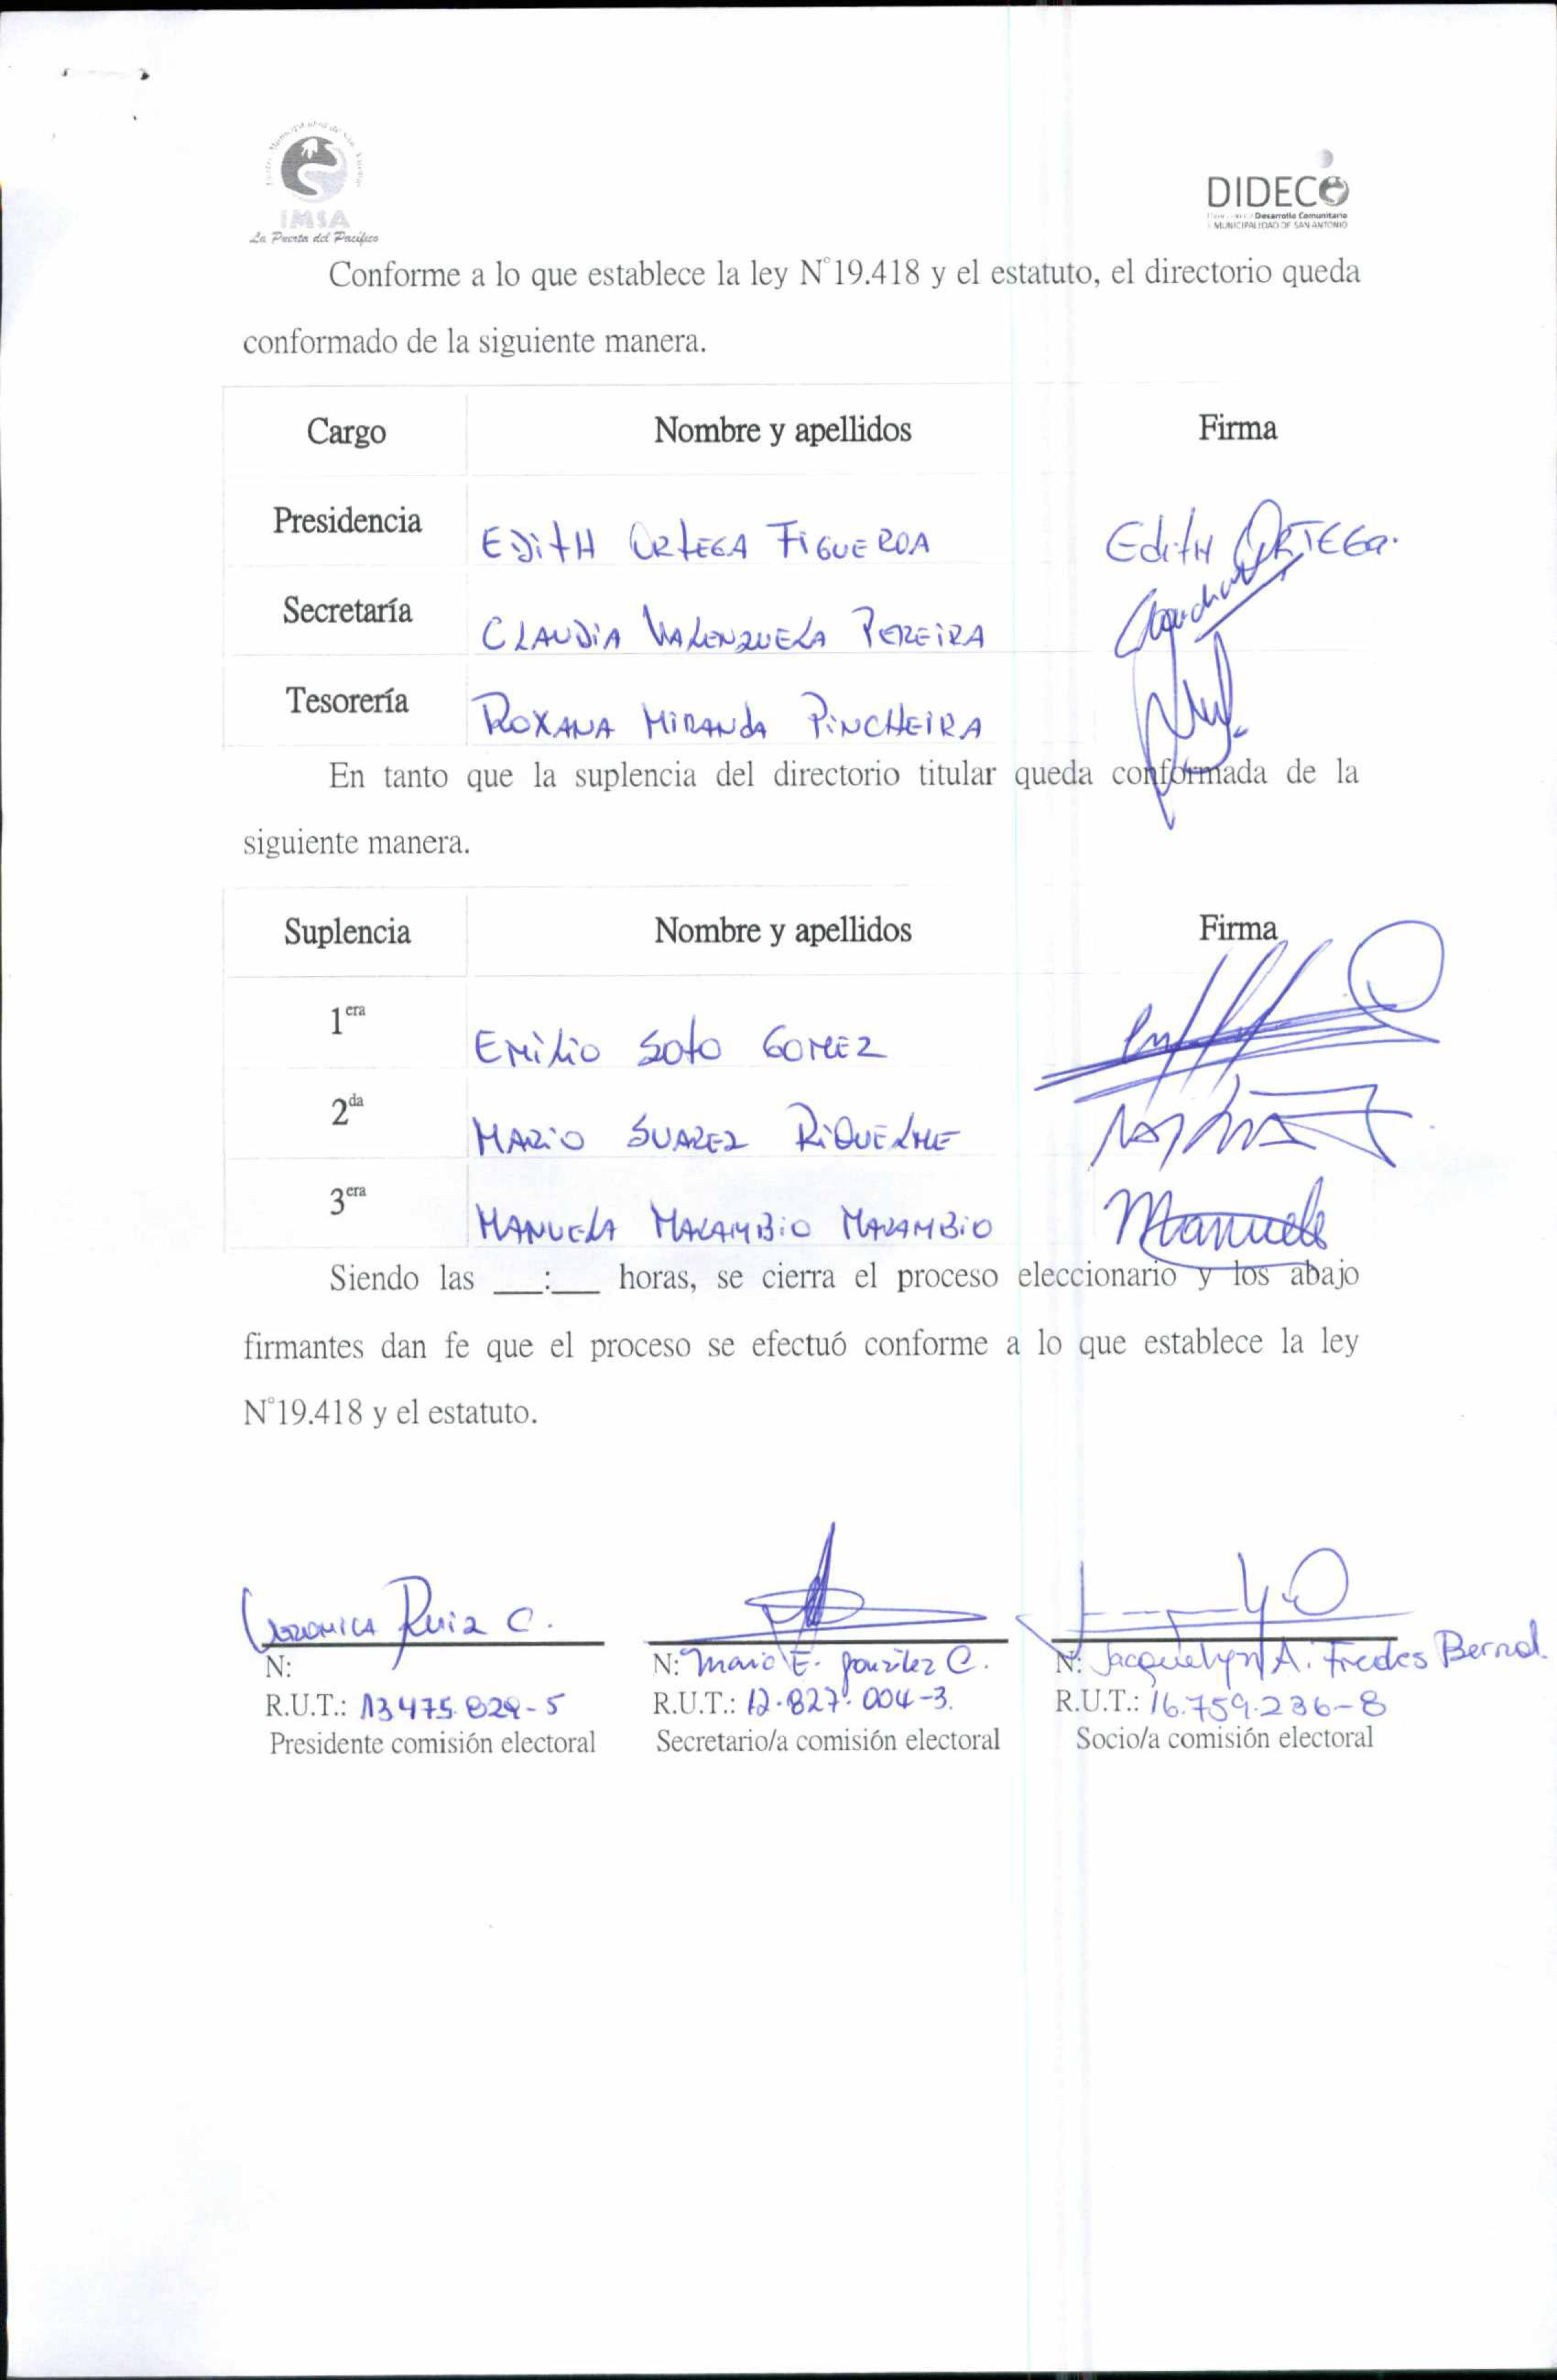 IMSA
La Puerta del Pacífico
DIDECO
Desarrollo Comunitario
MUNICIPALIDAD DE SAN ANTONIO
Conforme a lo que establece la ley N°19.418 y el estatuto, el directorio queda
conformado de la siguiente manera.
Cargo Nombre y apellidos Firma
Presidencia EDITH ORTEGA FIGUEROA Edith ORTEGA.
Secretaría CLAUDIA VALENZUELA PEREIRA Claudia
Tesorería ROXANA MIRANDA PINCHEIRA
En tanto que la suplencia del directorio titular queda conformada de la
siguiente manera.
Suplencia Nombre y apellidos Firma
1era EMILIO SOTO GOMEZ
2da MARIO SUAREZ RIQUELME
3era MANUELA MARAMBIO MARAMBIO Manuela
Siendo las ___:___ horas, se cierra el proceso eleccionario y los abajo
firmantes dan fe que el proceso se efectuó conforme a lo que establece la ley
N°19.418 y el estatuto.
Veronica Ruiz C.
N: N: Mario E. González C. N: Jacquelyn A. Fredes Bernal
R.U.T.: 13475.829-5 R.U.T.: 12.827.004-3. R.U.T.: 16.759.236-8
Presidente comisión electoral Secretario/a comisión electoral Socio/a comisión electoral